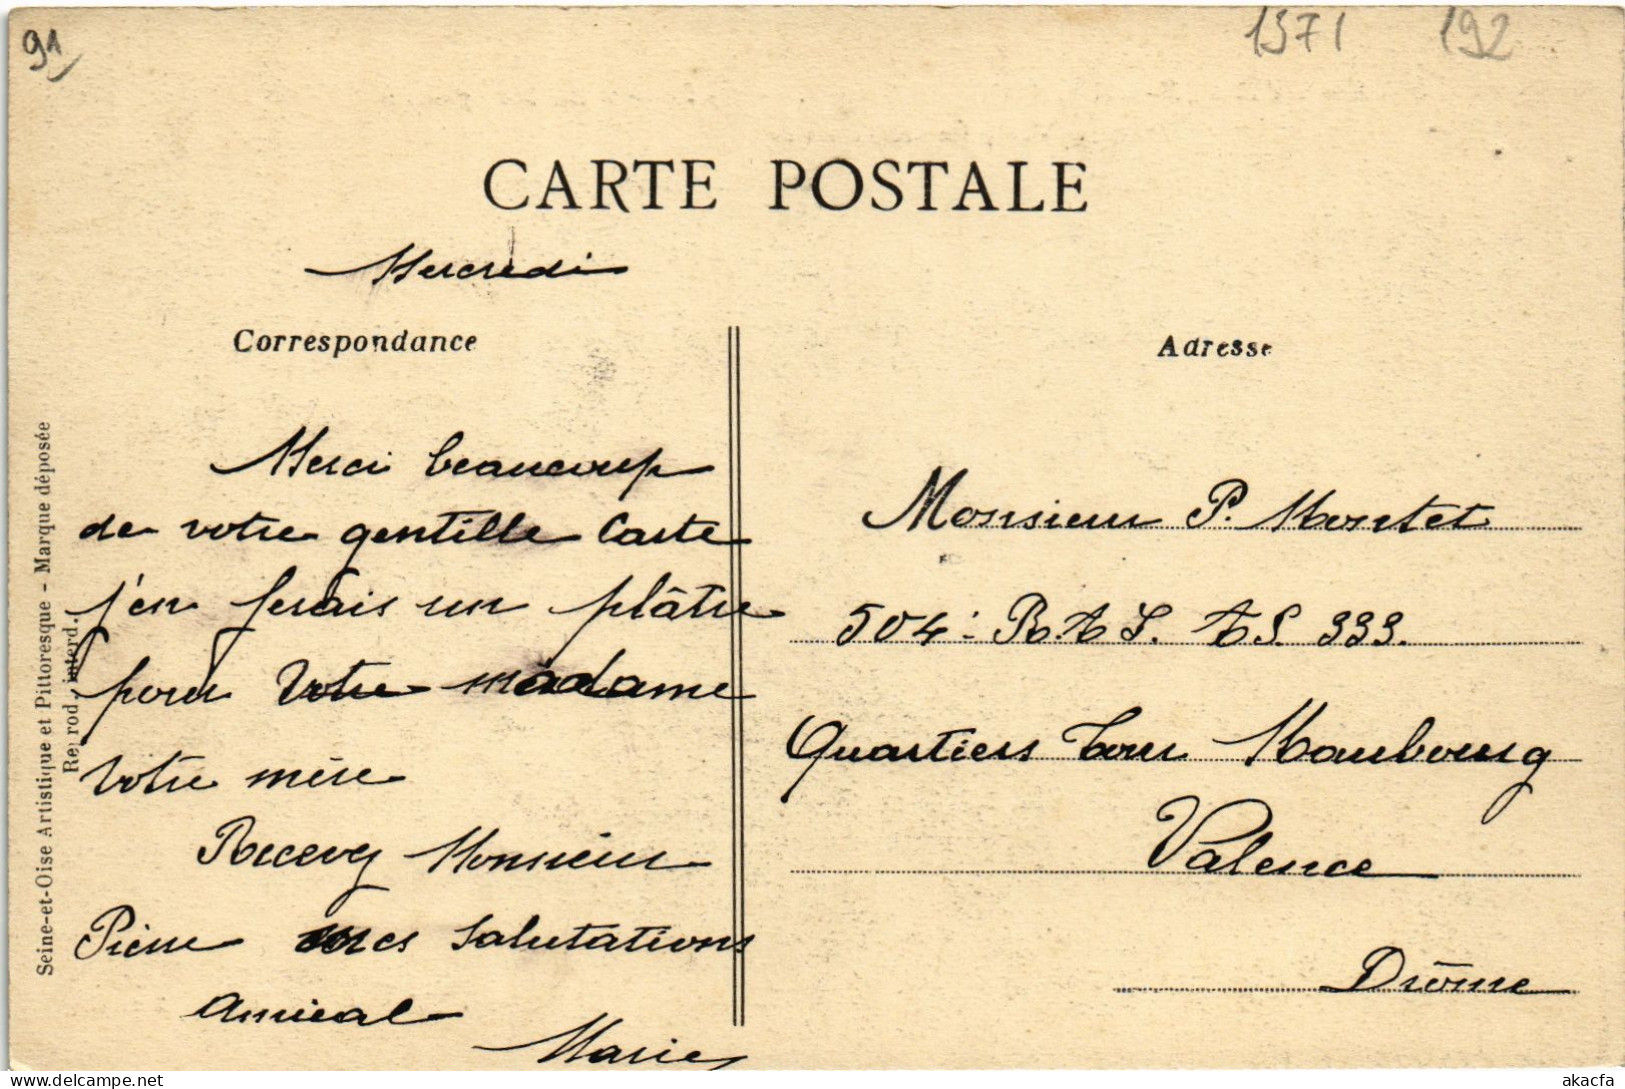 91
1371 192
CARTE POSTALE
Mercredi
Correspondance
Adresse
Merci beaucoup
de votre gentille Carte
j'en ferais un plâtre
pour Votre madame
Votre mère
Recevez Monsieur
Pierre mes Salutations
Amical
Marie
Monsieur P. Montet
504e R A L. TS 333.
Quartiers Tour Maubourg
Valence
Drôme
Seine-et-Oise Artistique et Pittoresque - Marque déposée
Reprod. interd.
delcampe.net
akacfa